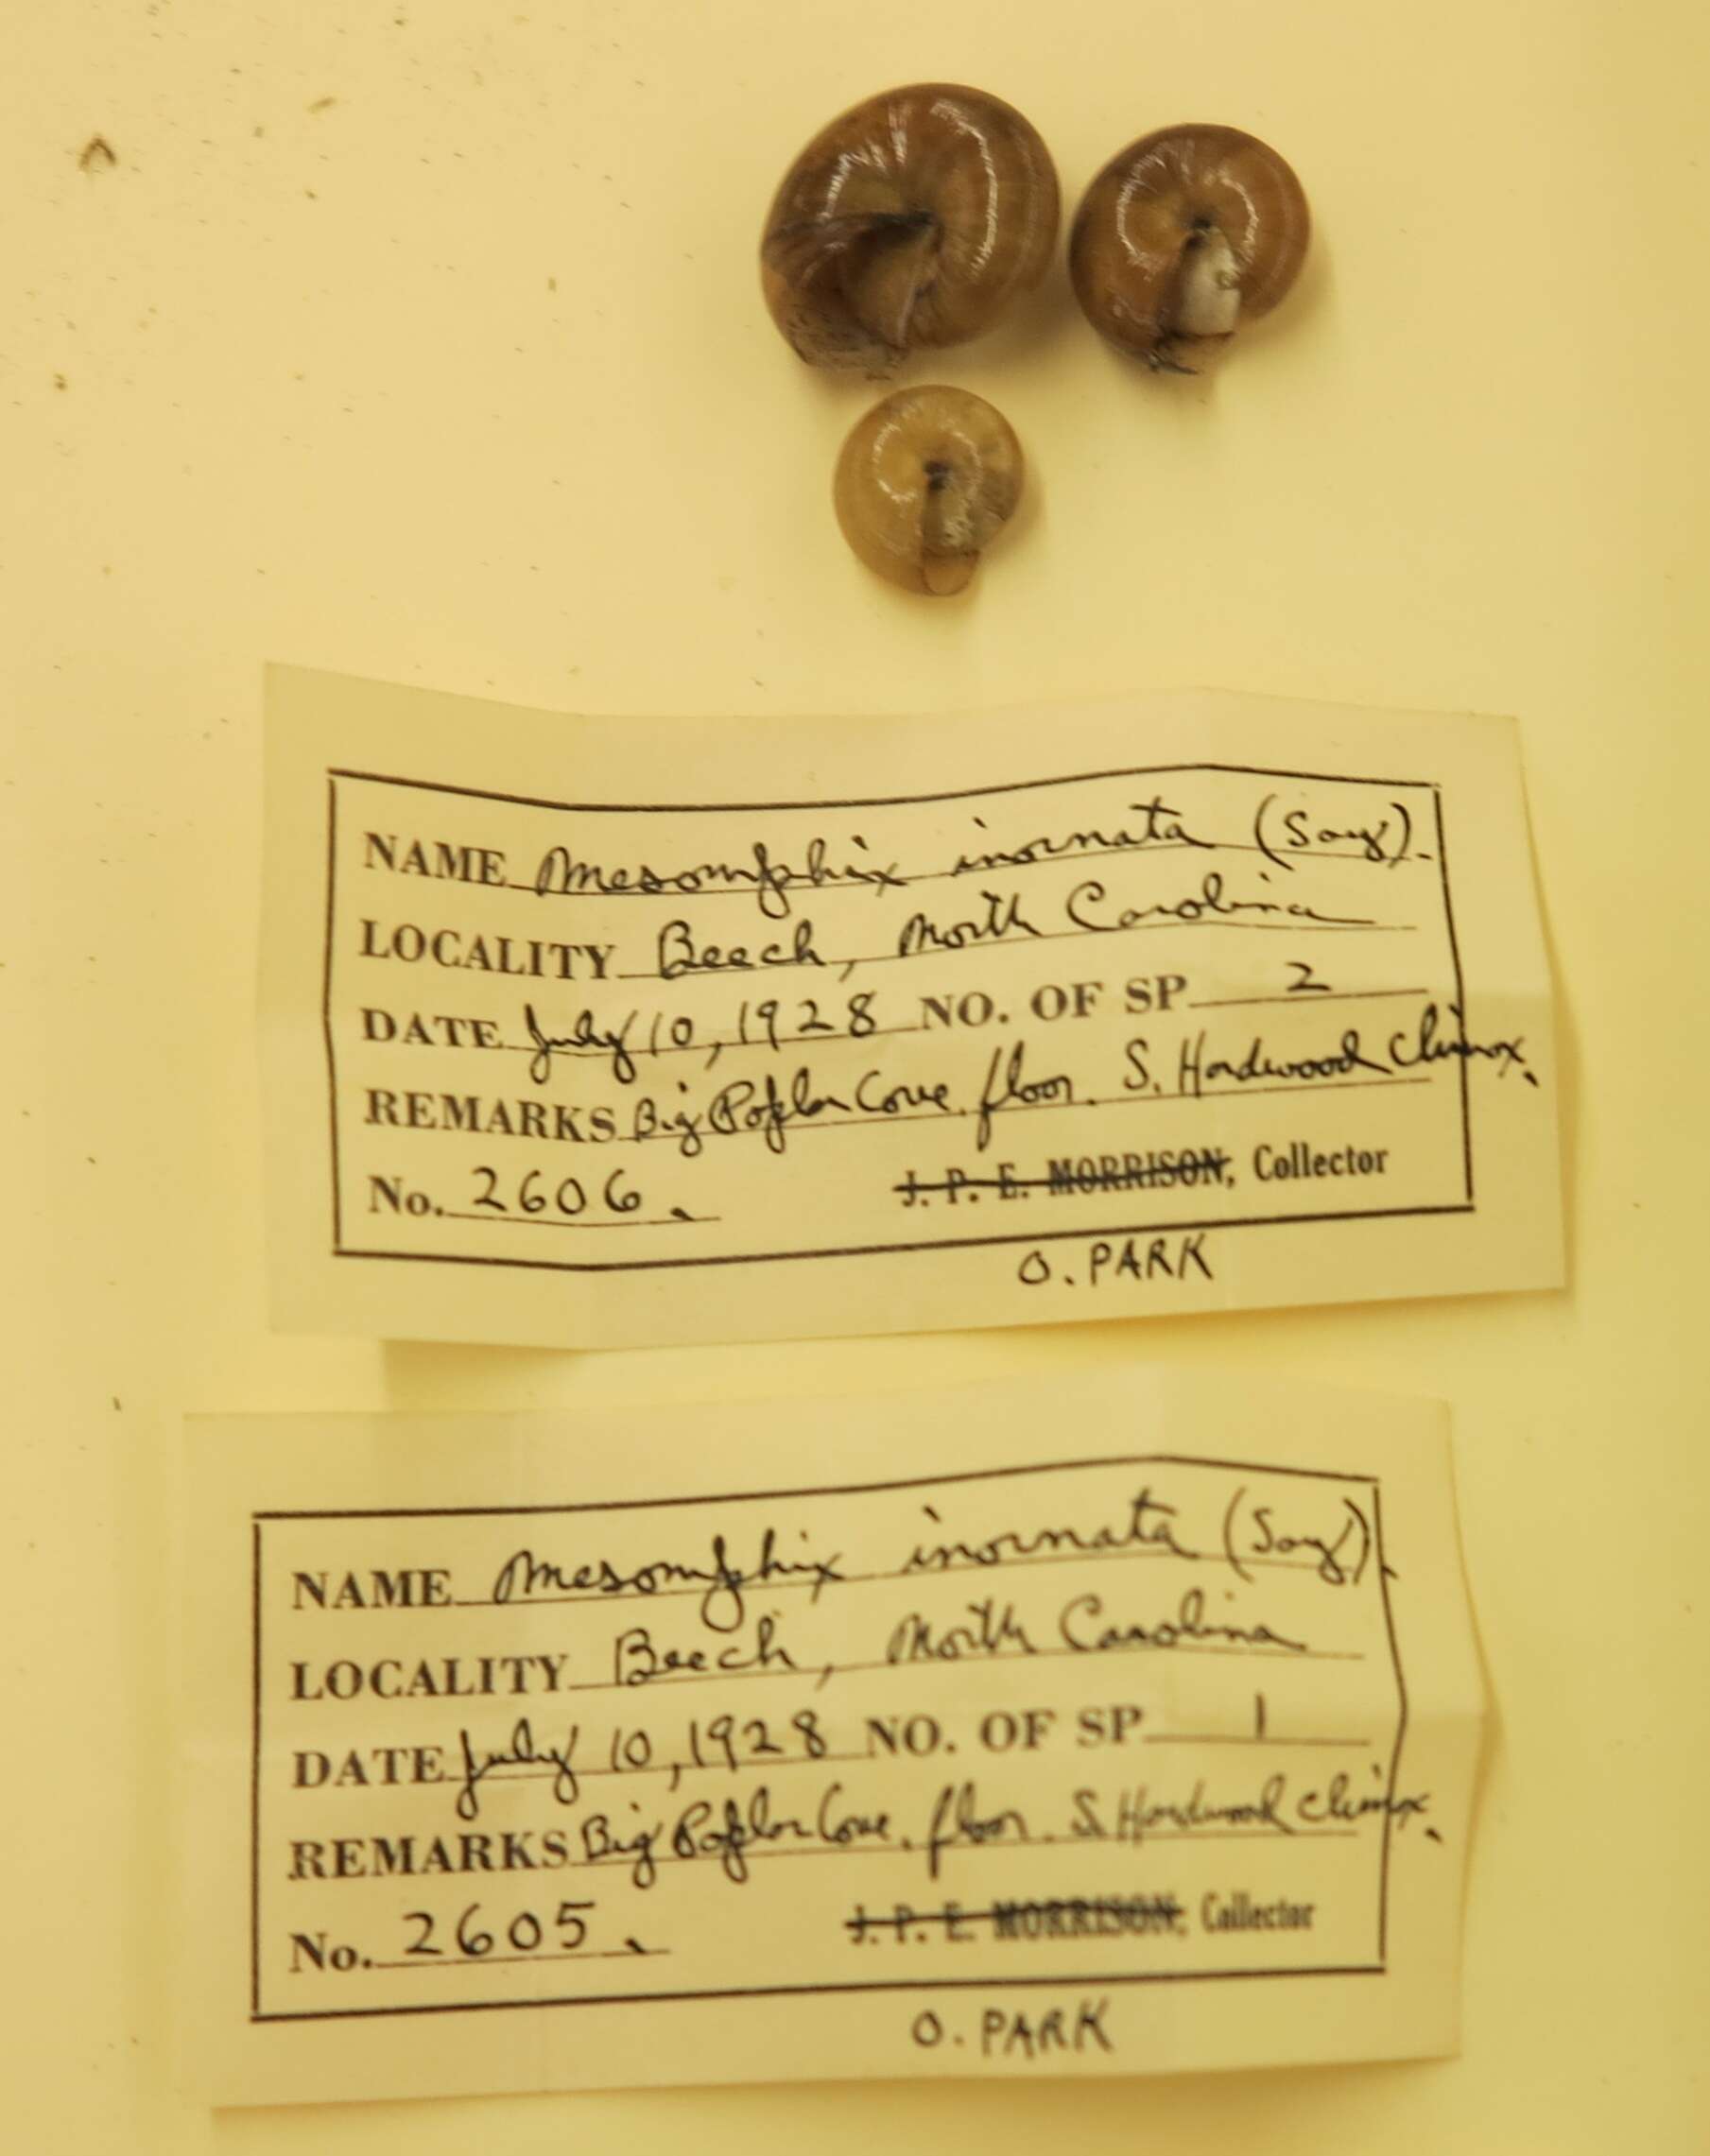 NAME Mesomphix inornata (Say).
LOCALITY Beech, North Carolina
DATE July 10, 1928 NO. OF SP 2
REMARKS Big Poplar Cove. floor. S. Hardwood climax.
No. 2606. J. P. E. MORRISON, Collector
O. PARK
NAME Mesomphix inornata (Say).
LOCALITY Beech, North Carolina
DATE July 10, 1928 NO. OF SP 1
REMARKS Big Poplar Cove. floor. S. Hardwood climax.
No. 2605. J. P. E. MORRISON, Collector
O. PARK